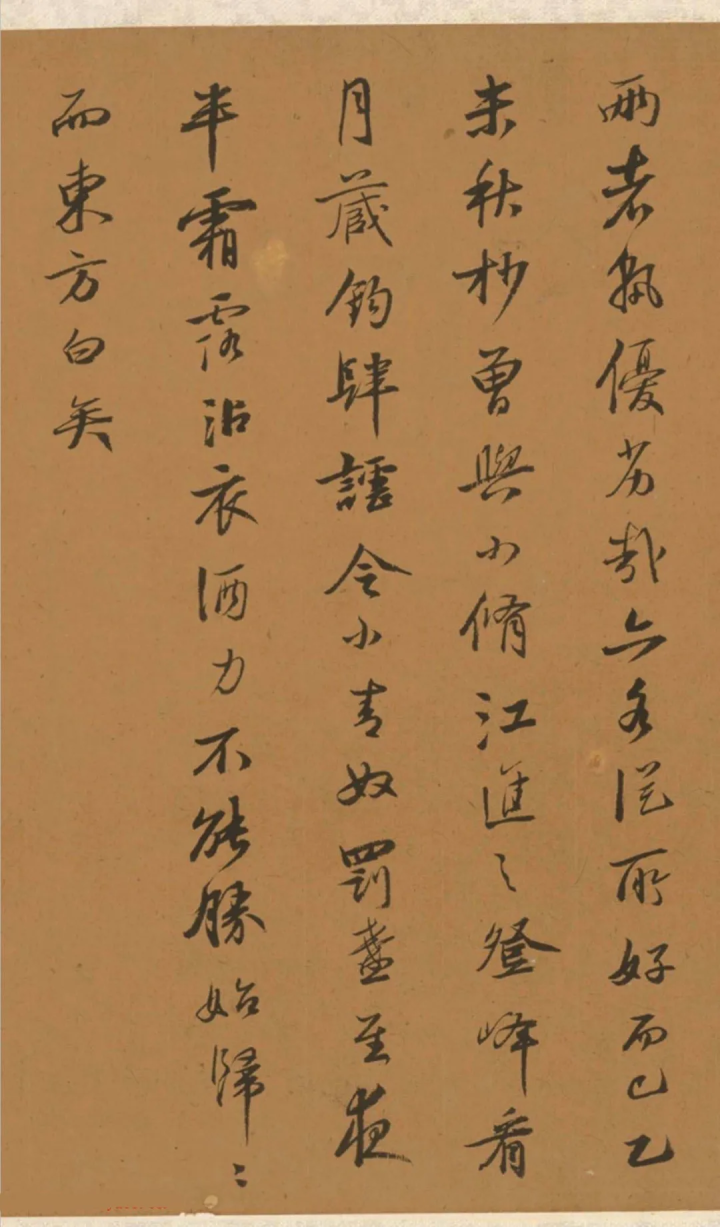 兩老孰優劣哉亦各從所好而已乙
未秋杪曾與小脩江進之登峰看
月藏鉤肆謔令小青奴罰盞至夜
半霜露沾衣酒力不能勝始歸〻
而東方白矣